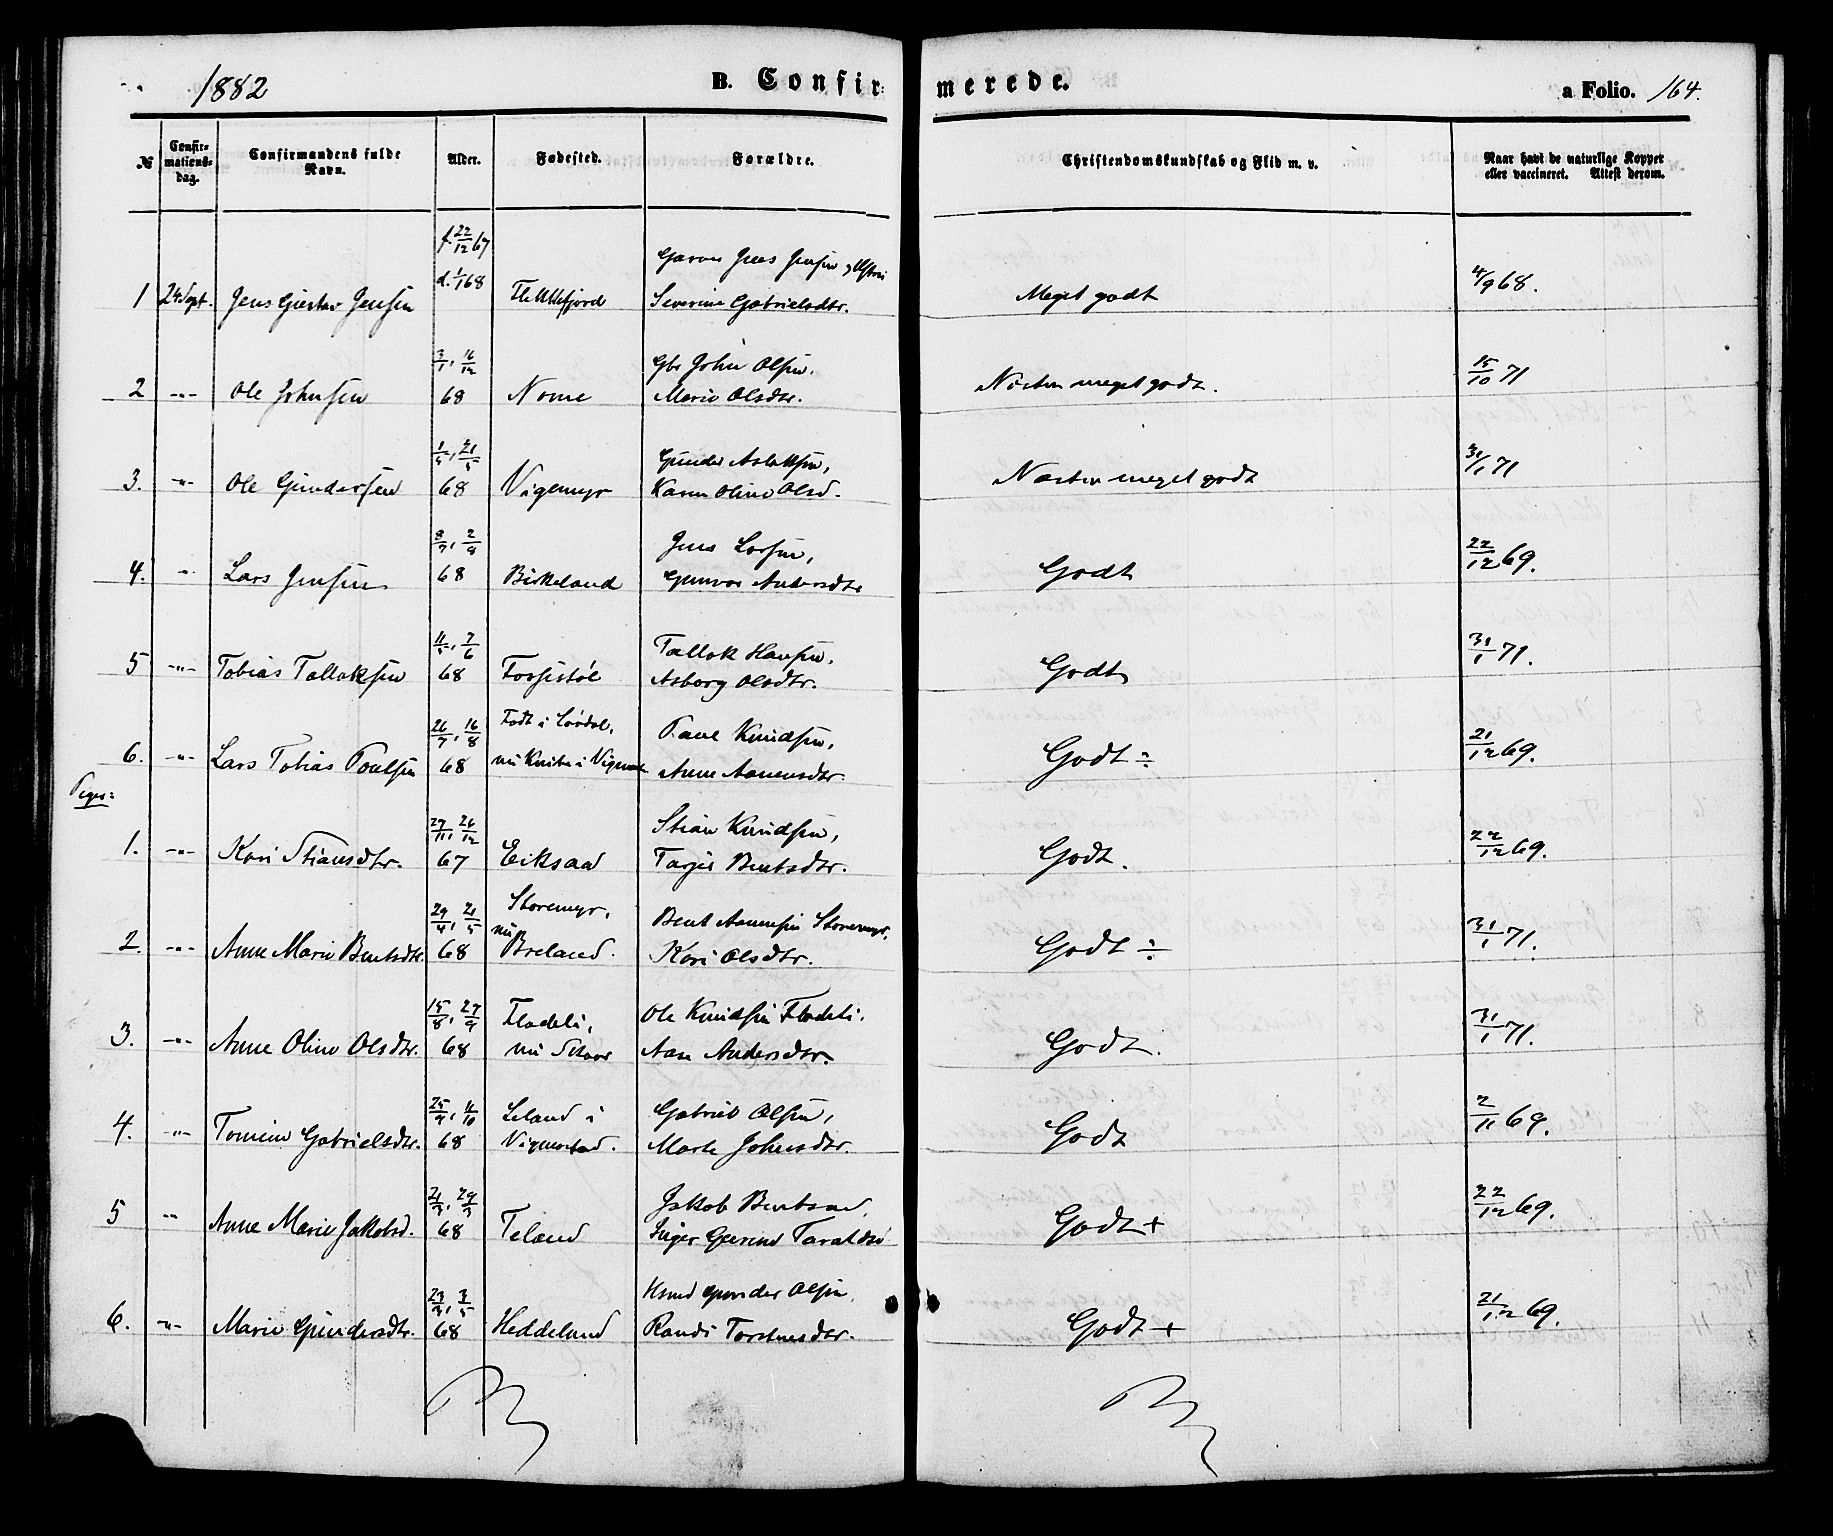 1882 B. Confirmerede. a Folio. 164.
№ Confirmationsdag. Confirmandens fulde Navn. Alder. Fødested. Forældre. Christendomskundskab og Flid m. v. Naar havt de naturlige Kopper eller vaccineret. Attest derom.
f. 22/12 67
d. 1/1 68 Jens Jensen
1 24 Sept. Jens Gustav Jensen Flekkefjord Severine Gabrielsdtr. Meget godt 4/9 68.
3/1, 16/12 Gbr John Olsen,
2 -"- Ole Johnsen 68 Nome Marie Olsdtr. Næsten meget godt. 15/10 71
Gunder Aslaksen,
3. -"- Ole Gundersen 68 Vigemyr Karen Oline Olsd. Næsten meget godt 31/1 71
Jens Larsen,
4. -"- Lars Jensen 68 Birkeland Gunvor Andersdtr Godt 22/12 69.
7/6 Tallak Hansen,
5 -"- Tobias Tallaksen 68 Fossestøl Asborg Olsdtr. Godt 31/1 71.
26/7, 16/8 Født i Lavdal, Paul Knudsen,
6. -"- Lars Tobias Poulsen 68 Anne Aanensdtr. Godt ÷ 21/12 69.
Piger:
29/11, 26/12 Stian Knudsen,
1. -"- Kari Stiansdtr. 67 Eiksaa Targie Bentsdtr. Godt. 22/12 69.
29/4, 21/5 Storemyr, Bent Aanensen Storemyr,
2. -"- Anne Marie Bentsdtr. 68 nu Breland. Kari Olsdtr. Godt ÷ 31/1 71.
15/8, 27/9 Flodeli, Ole Knudsen Flodeli,
3. -"- Anne Oline Olsdtr. 68 nu Skaar Aase Andersdtr. Godt. 31/1 71.
25/9, 11/10 Leland i Gabriel Olsen,
4. -"- Tomine Gabrielsdtr. 68 Vigmostad. Marte Johnsdtr. Godt 2/11 69.
29/3 Jakob Bentsen,
5 -"- Anne Marie Jakobsd. 68 Teland Inger Gurine Taraldsd Godt + 22/12 69.
23/3, 3/5 Hsmd Gunder Olsen,
6. -"- Marie Gundersdtr. 68 Heddeland Randi Torstensdtr. Godt + 21/12 69.